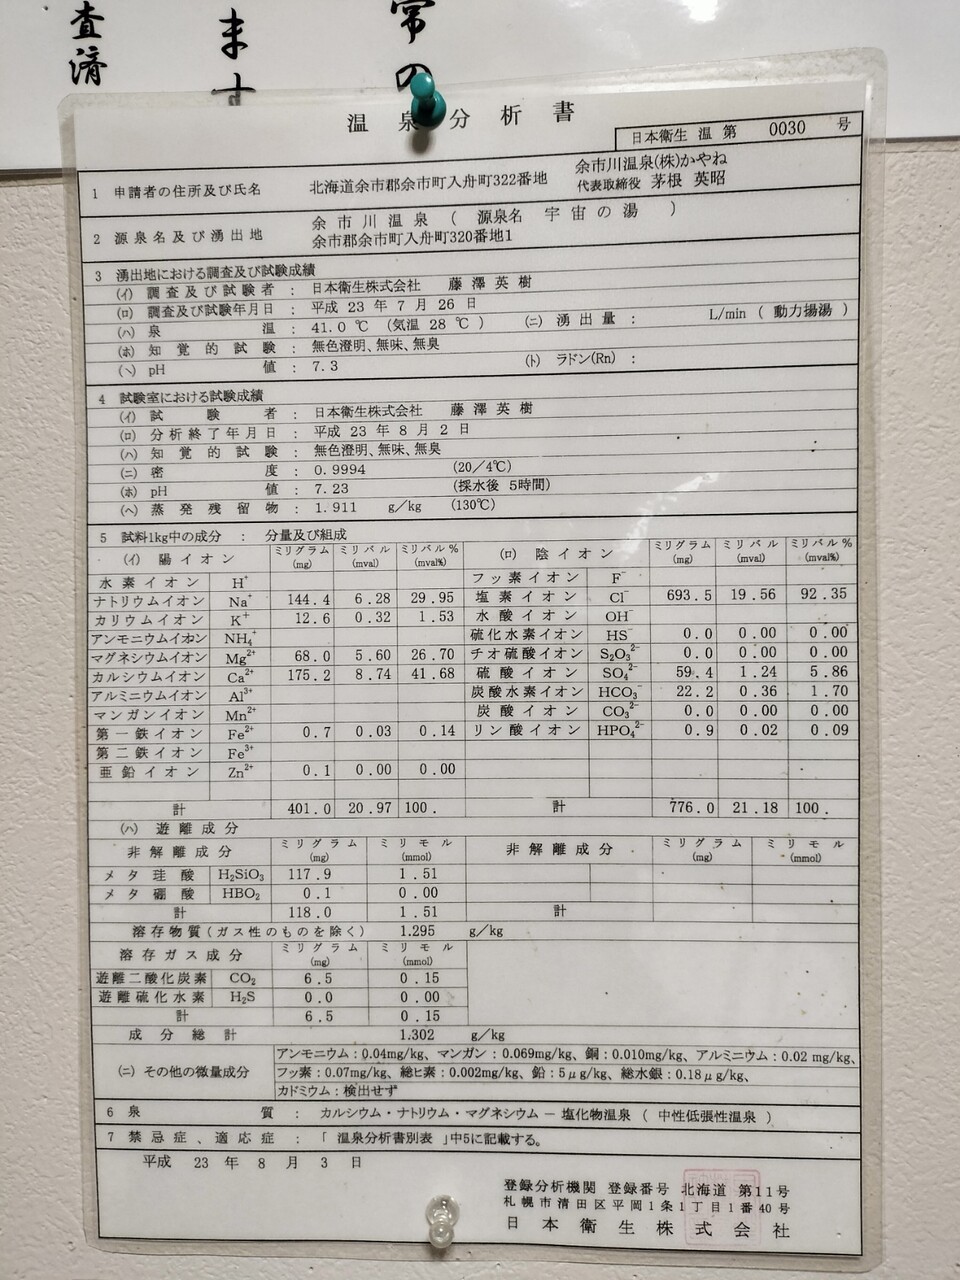 査済
ます
常の
温泉分析書
日本衛生 温 第 0030 号
1 申請者の住所及び氏名 北海道余市郡余市町入舟町322番地 余市川温泉(株)かやね
代表取締役 茅根 英昭
2 源泉名及び湧出地 余市川温泉 ( 源泉名 宇宙の湯 )
余市郡余市町入舟町320番地1
3 湧出地における調査及び試験成績
(イ) 調査及び試験者 : 日本衛生株式会社 藤澤英樹
(ロ) 調査及び試験年月日 : 平成 23 年 7 月 26 日
(ハ) 泉温 : 41.0 ℃ (気温 28 ℃ ) (ニ) 湧出量 : L/min ( 動力揚湯 )
(ホ) 知覚的試験 : 無色澄明、無味、無臭
(ヘ) pH 値 : 7.3 (ト) ラドン(Rn) :
4 試験室における試験成績
(イ) 試験者 : 日本衛生株式会社 藤澤英樹
(ロ) 分析終了年月日 : 平成 23 年 8 月 2 日
(ハ) 知覚的試験 : 無色澄明、無味、無臭
(ニ) 密度 : 0.9994 (20/4℃)
(ホ) pH 値 : 7.23 (採水後 5時間)
(ヘ) 蒸発残留物 : 1.911 g/kg (130℃)
5 試料1kg中の成分 : 分量及び組成
(イ) 陽イオン ミリグラム (mg) ミリバル (mval) ミリバル% (mval%) (ロ) 陰イオン ミリグラム (mg) ミリバル (mval) ミリバル% (mval%)
水素イオン H⁺ フッ素イオン F⁻
ナトリウムイオン Na⁺ 144.4 6.28 29.95 塩素イオン Cl⁻ 693.5 19.56 92.35
カリウムイオン K⁺ 12.6 0.32 1.53 水酸イオン OH⁻
アンモニウムイオン NH₄⁺ 硫化水素イオン HS⁻ 0.0 0.00 0.00
マグネシウムイオン Mg²⁺ 68.0 5.60 26.70 チオ硫酸イオン S₂O₃²⁻ 0.0 0.00 0.00
カルシウムイオン Ca²⁺ 175.2 8.74 41.68 硫酸イオン SO₄²⁻ 59.4 1.24 5.86
アルミニウムイオン Al³⁺ 炭酸水素イオン HCO₃⁻ 22.2 0.36 1.70
マンガンイオン Mn²⁺ 炭酸イオン CO₃²⁻ 0.0 0.00 0.00
第一鉄イオン Fe²⁺ 0.7 0.03 0.14 リン酸イオン HPO₄²⁻ 0.9 0.02 0.09
第二鉄イオン Fe³⁺
亜鉛イオン Zn²⁺ 0.1 0.00 0.00
計 401.0 20.97 100. 計 776.0 21.18 100.
(ハ) 遊離成分
非解離成分 ミリグラム (mg) ミリモル (mmol) 非解離成分 ミリグラム (mg) ミリモル (mmol)
メタ珪酸 H₂SiO₃ 117.9 1.51
メタ硼酸 HBO₂ 0.1 0.00
計 118.0 1.51 計
溶存物質(ガス性のものを除く) 1.295 g/kg
溶存ガス成分 ミリグラム (mg) ミリモル (mmol)
遊離二酸化炭素 CO₂ 6.5 0.15
遊離硫化水素 H₂S 0.0 0.00
計 6.5 0.15
成分総計 1.302 g/kg
(ニ) その他の微量成分 アンモニウム:0.04mg/kg、マンガン:0.069mg/kg、銅:0.010mg/kg、アルミニウム:0.02 mg/kg、
フッ素:0.07mg/kg、総ヒ素:0.002mg/kg、鉛:5μg/kg、総水銀:0.18μg/kg、
カドミウム:検出せず
6 泉質 : カルシウム・ナトリウム・マグネシウム － 塩化物温泉 ( 中性低張性温泉 )
7 禁忌症、適応症 : 「 温泉分析書別表 」中5に記載する。
平成 23 年 8 月 3 日
登録分析機関 登録番号 北海道 第11号
札幌市清田区平岡1条1丁目1番40号
日本衛生株式会社